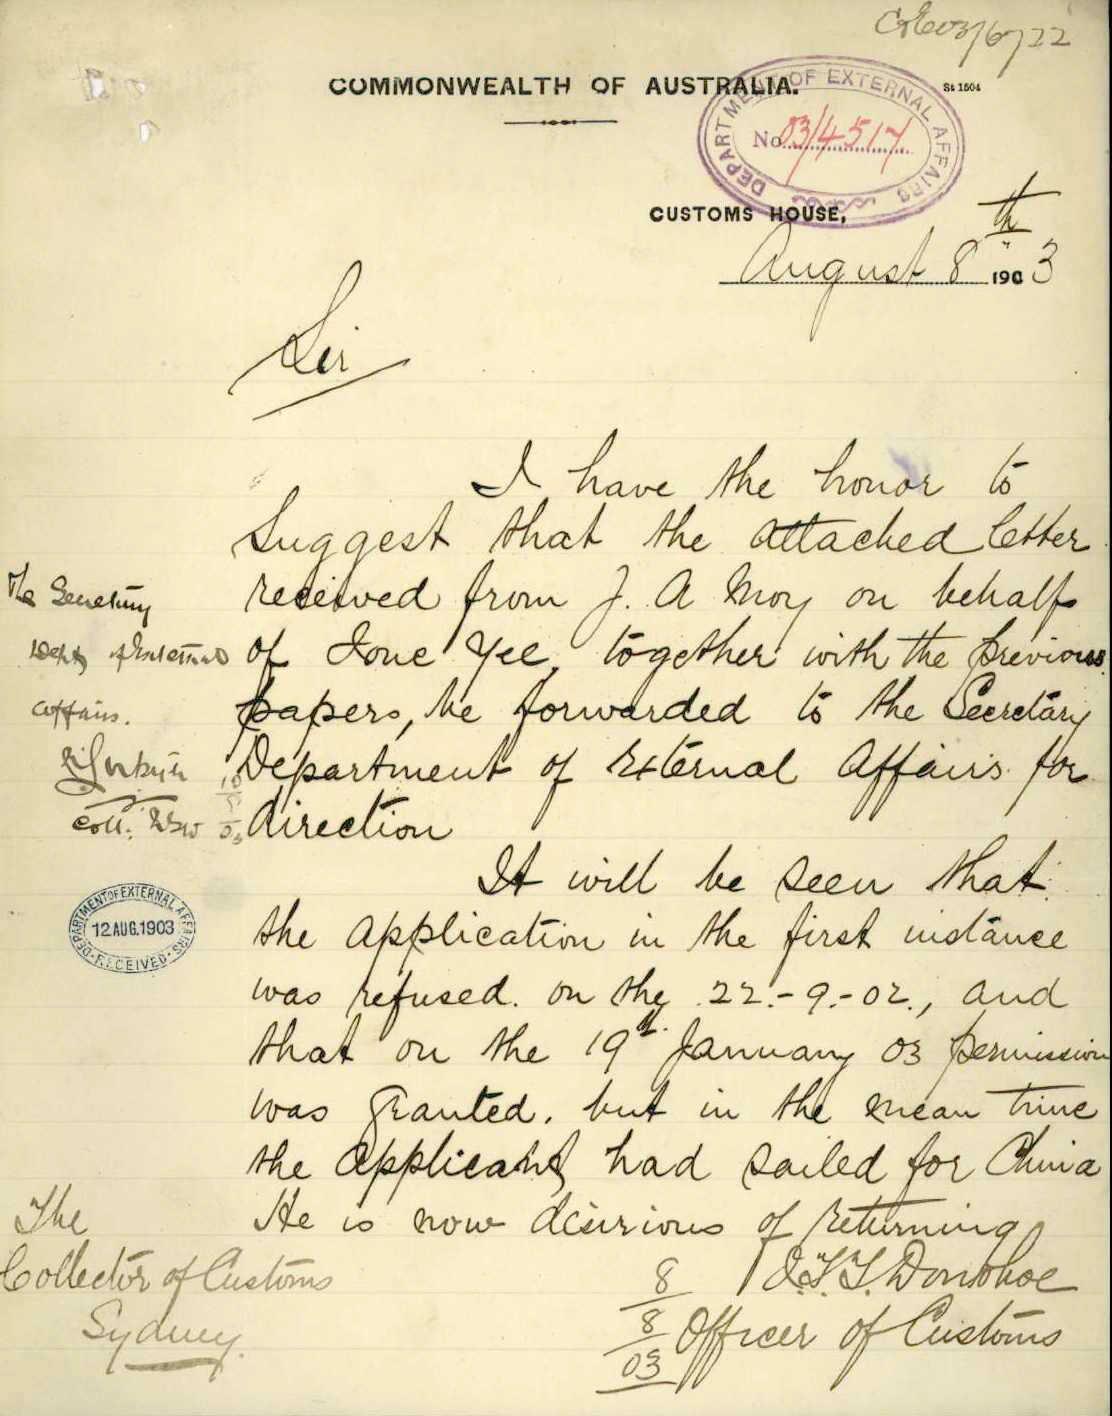 03/6722
COMMONWEALTH OF AUSTRALIA.
St 1504
DEPARTMENT OF EXTERNAL AFFAIRS
No 03/4517
CUSTOMS HOUSE,
August 8th 1903
Sir
I have the honor to
suggest that the attached letter
received from J. A Moy on behalf
of Ione Yee, together with the previous
papers, be forwarded to the Secretary
Department of External Affairs for
direction
The Secretary
Dept of External
Affairs.
Coll. NSW
10
8
03
DEPARTMENT OF EXTERNAL AFFAIRS
12 AUG. 1903
RECEIVED
It will be seen that
the application in the first instance
was refused. on the 22.-9.-02., and
that on the 19th January 03 permission
was granted. but in the mean time
the applicant had sailed for China
He is now desirious of returning
J.T.T. Donohoe
Officer of Customs
8
8
03
The
Collector of Customs
Sydney.